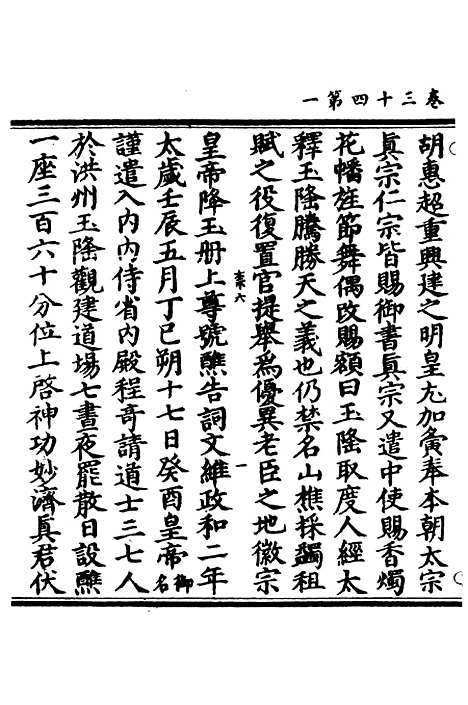 卷三十四第一
胡惠超重興建之明皇尤加寅奉本朝太宗
真宗仁宗皆賜御書真宗又遣中使賜香燭
花幡旌節舞偶改賜額曰玉隆取度人經太
釋玉隆騰勝天之義也仍禁名山樵採蠲租
賦之役復置官提舉為優異老臣之地徽宗
皇帝降玉册上尊號醮告詞文維政和二年
太歲壬辰五月丁巳朔十七日癸酉皇帝御名
謹遣入內內侍省內殿程奇請道士三七人
於洪州玉隆觀建道場七晝夜罷散日設醮
一座三百六十分位上啓神功妙濟真君伏